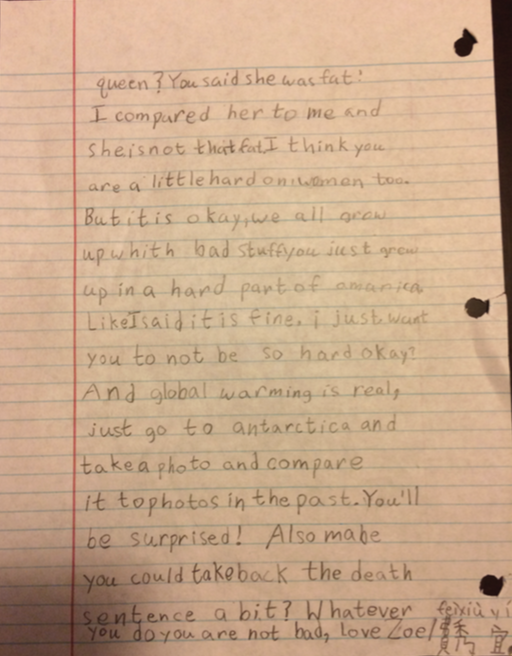 queen? You said she was fat!
I compared her to me and
she is not that fat. I think you
are a little hard on women too.
But it is okay, we all grew
up whith bad stuff you just grew
up in a hard part of amarica.
Like I said it is fine, i just want
you to not be so hard okay?
And global warming is real,
just go to antarctica and
take a photo and compare
it to photos in the past. You'll
be surprised! Also mabe
you could take back the death
sentence a bit? Whatever
you do you are not bad, love Zoe/
秀 宜